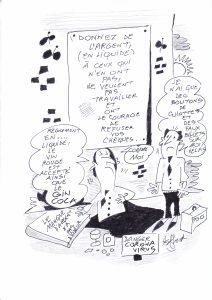 DONNEZ DE
L'ARGENT,
(EN LIQUIDE)
À CEUX QUI
N'EN ONT
PAS,
NE VEULENT
PAS
TRAVAILLER
ET
ONT
LE COURAGE
DE
REFUSER
VOS
CHÈQUES.
JE
N'AI QUE
DES
BOUTONS
DE
CULOTTES
ET
DES
FAUX
REGLEMENT
EN
LIQUIDE:
LE VIN
ROUGE
EST
ACCEPTÉ
AINSI
QUE
LE
GIN
COLA
MOI
DANGER
CORONA
VIRUS